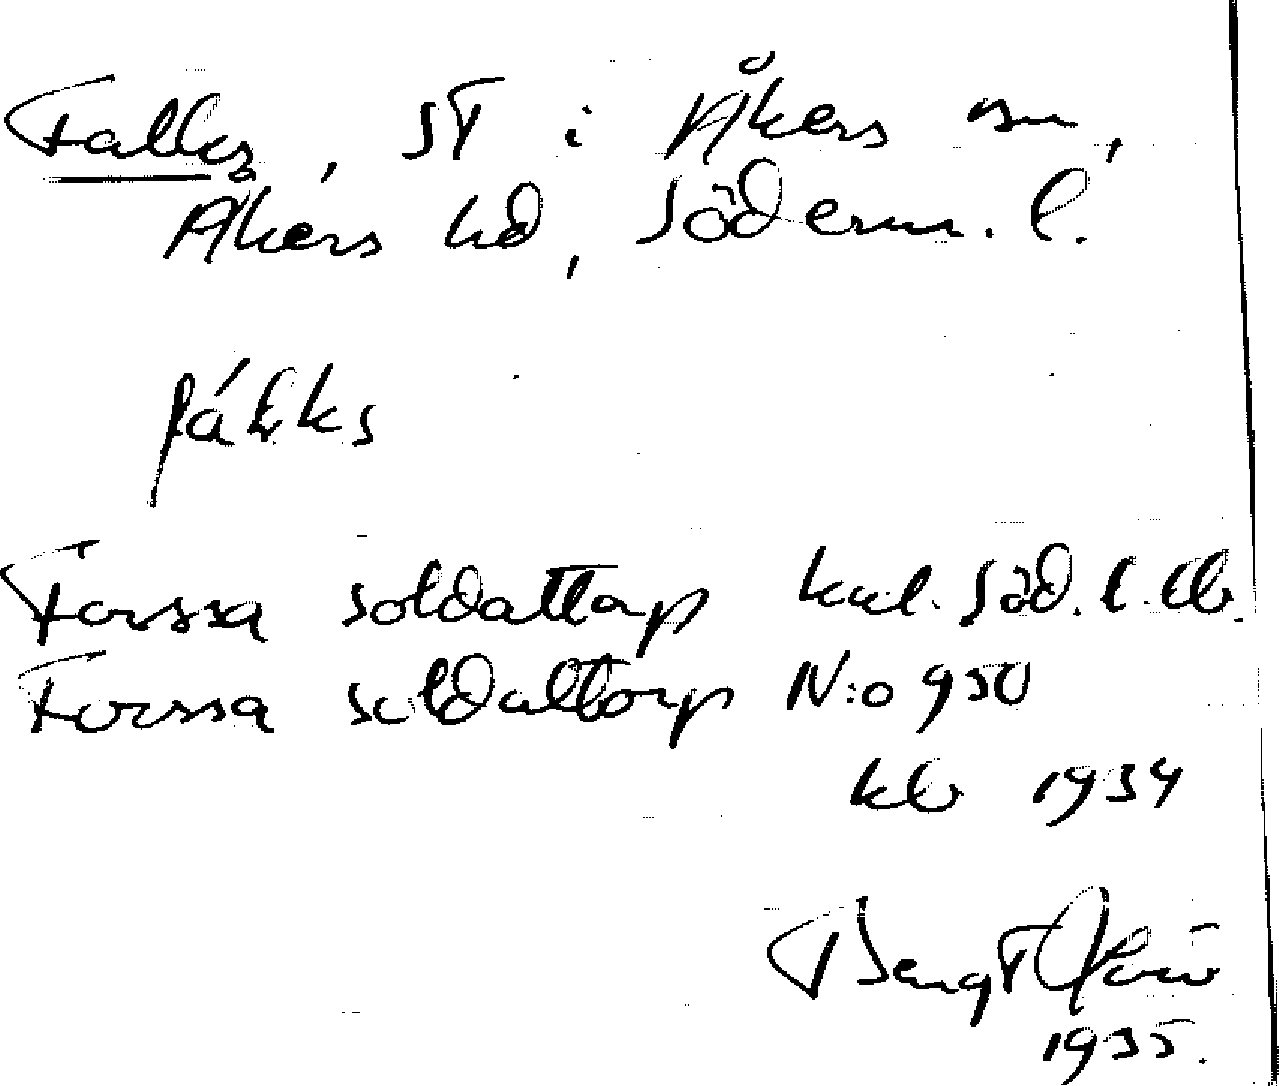 Falks, ST i Åkers sn,
Åkers hd, Söderm. l.
fálks
Forssa soldattorp
Forssa soldattorp N:o 950
kb 1934
Bengt
1935.